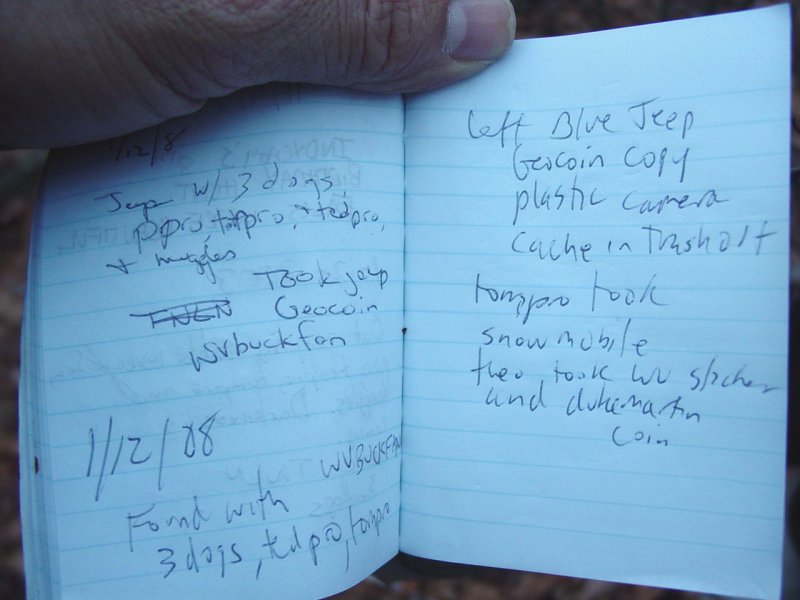 1/12/8
Jeep w/ 3 dogs,
ppro, tedpro,
+ muggles
TOOK jeep
Geocoin
WVbuckfan
1/12/08
Found with WVBUCKFAN
3 dogs, tedpro, tompro
left Blue Jeep
Geocoin copy
plastic camera
cache in Trash out
tompro took
snowmobile
theo took WV sticker
and dukemartin
coin